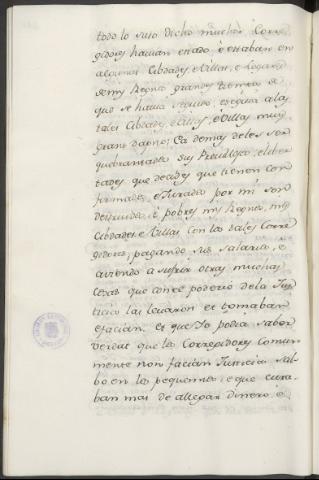 todo lo suso dicho muchos Corre-
gidores havian estado, e estaban en
algunas Cibdades, e Villas, e Logares
de mis Regnos grandes tiempos de
que se havia seguido, e seguia a las
tales Cibdades, e Villas muy
grant dapno; Ca demas de les ser
quebrantados sus Previllegios, e liber
tades que decides que tienen con
firmados, e Jurados por mi son
destruidos, e pobres mis Regnos, mis
Cibdades, e Villas con los tales Corre
gidores, pagando sus salarios, e
aviendo a sufrir otras muchas
cosas que con el poderio de la Jus
ticia las levaron et tomaban
e facian. et que Yo podia saber
verdat que los Corregidores comun
mente non facian Justicia sal-
bo en los pequennos, e que cura-
ban mas de allegar dinero e